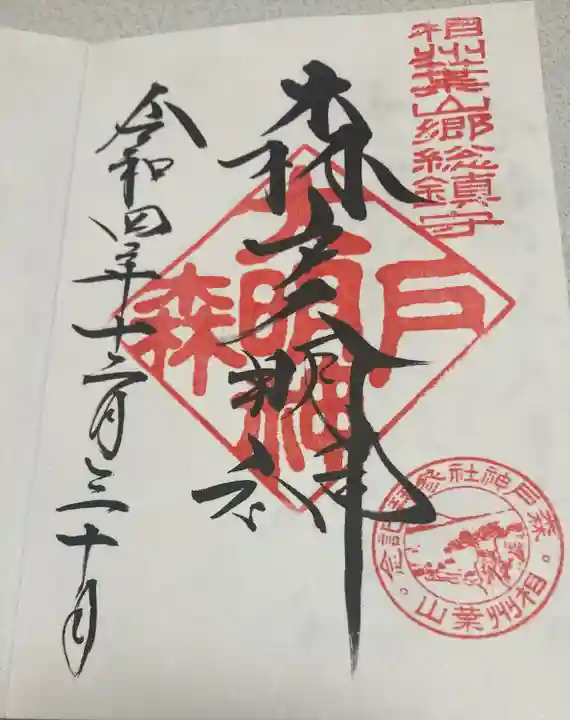 相州葉山郷総鎮守
森戸大明神
森戸大明神
令和四年十二月三十日
森戸神社参拝記念
相州葉山